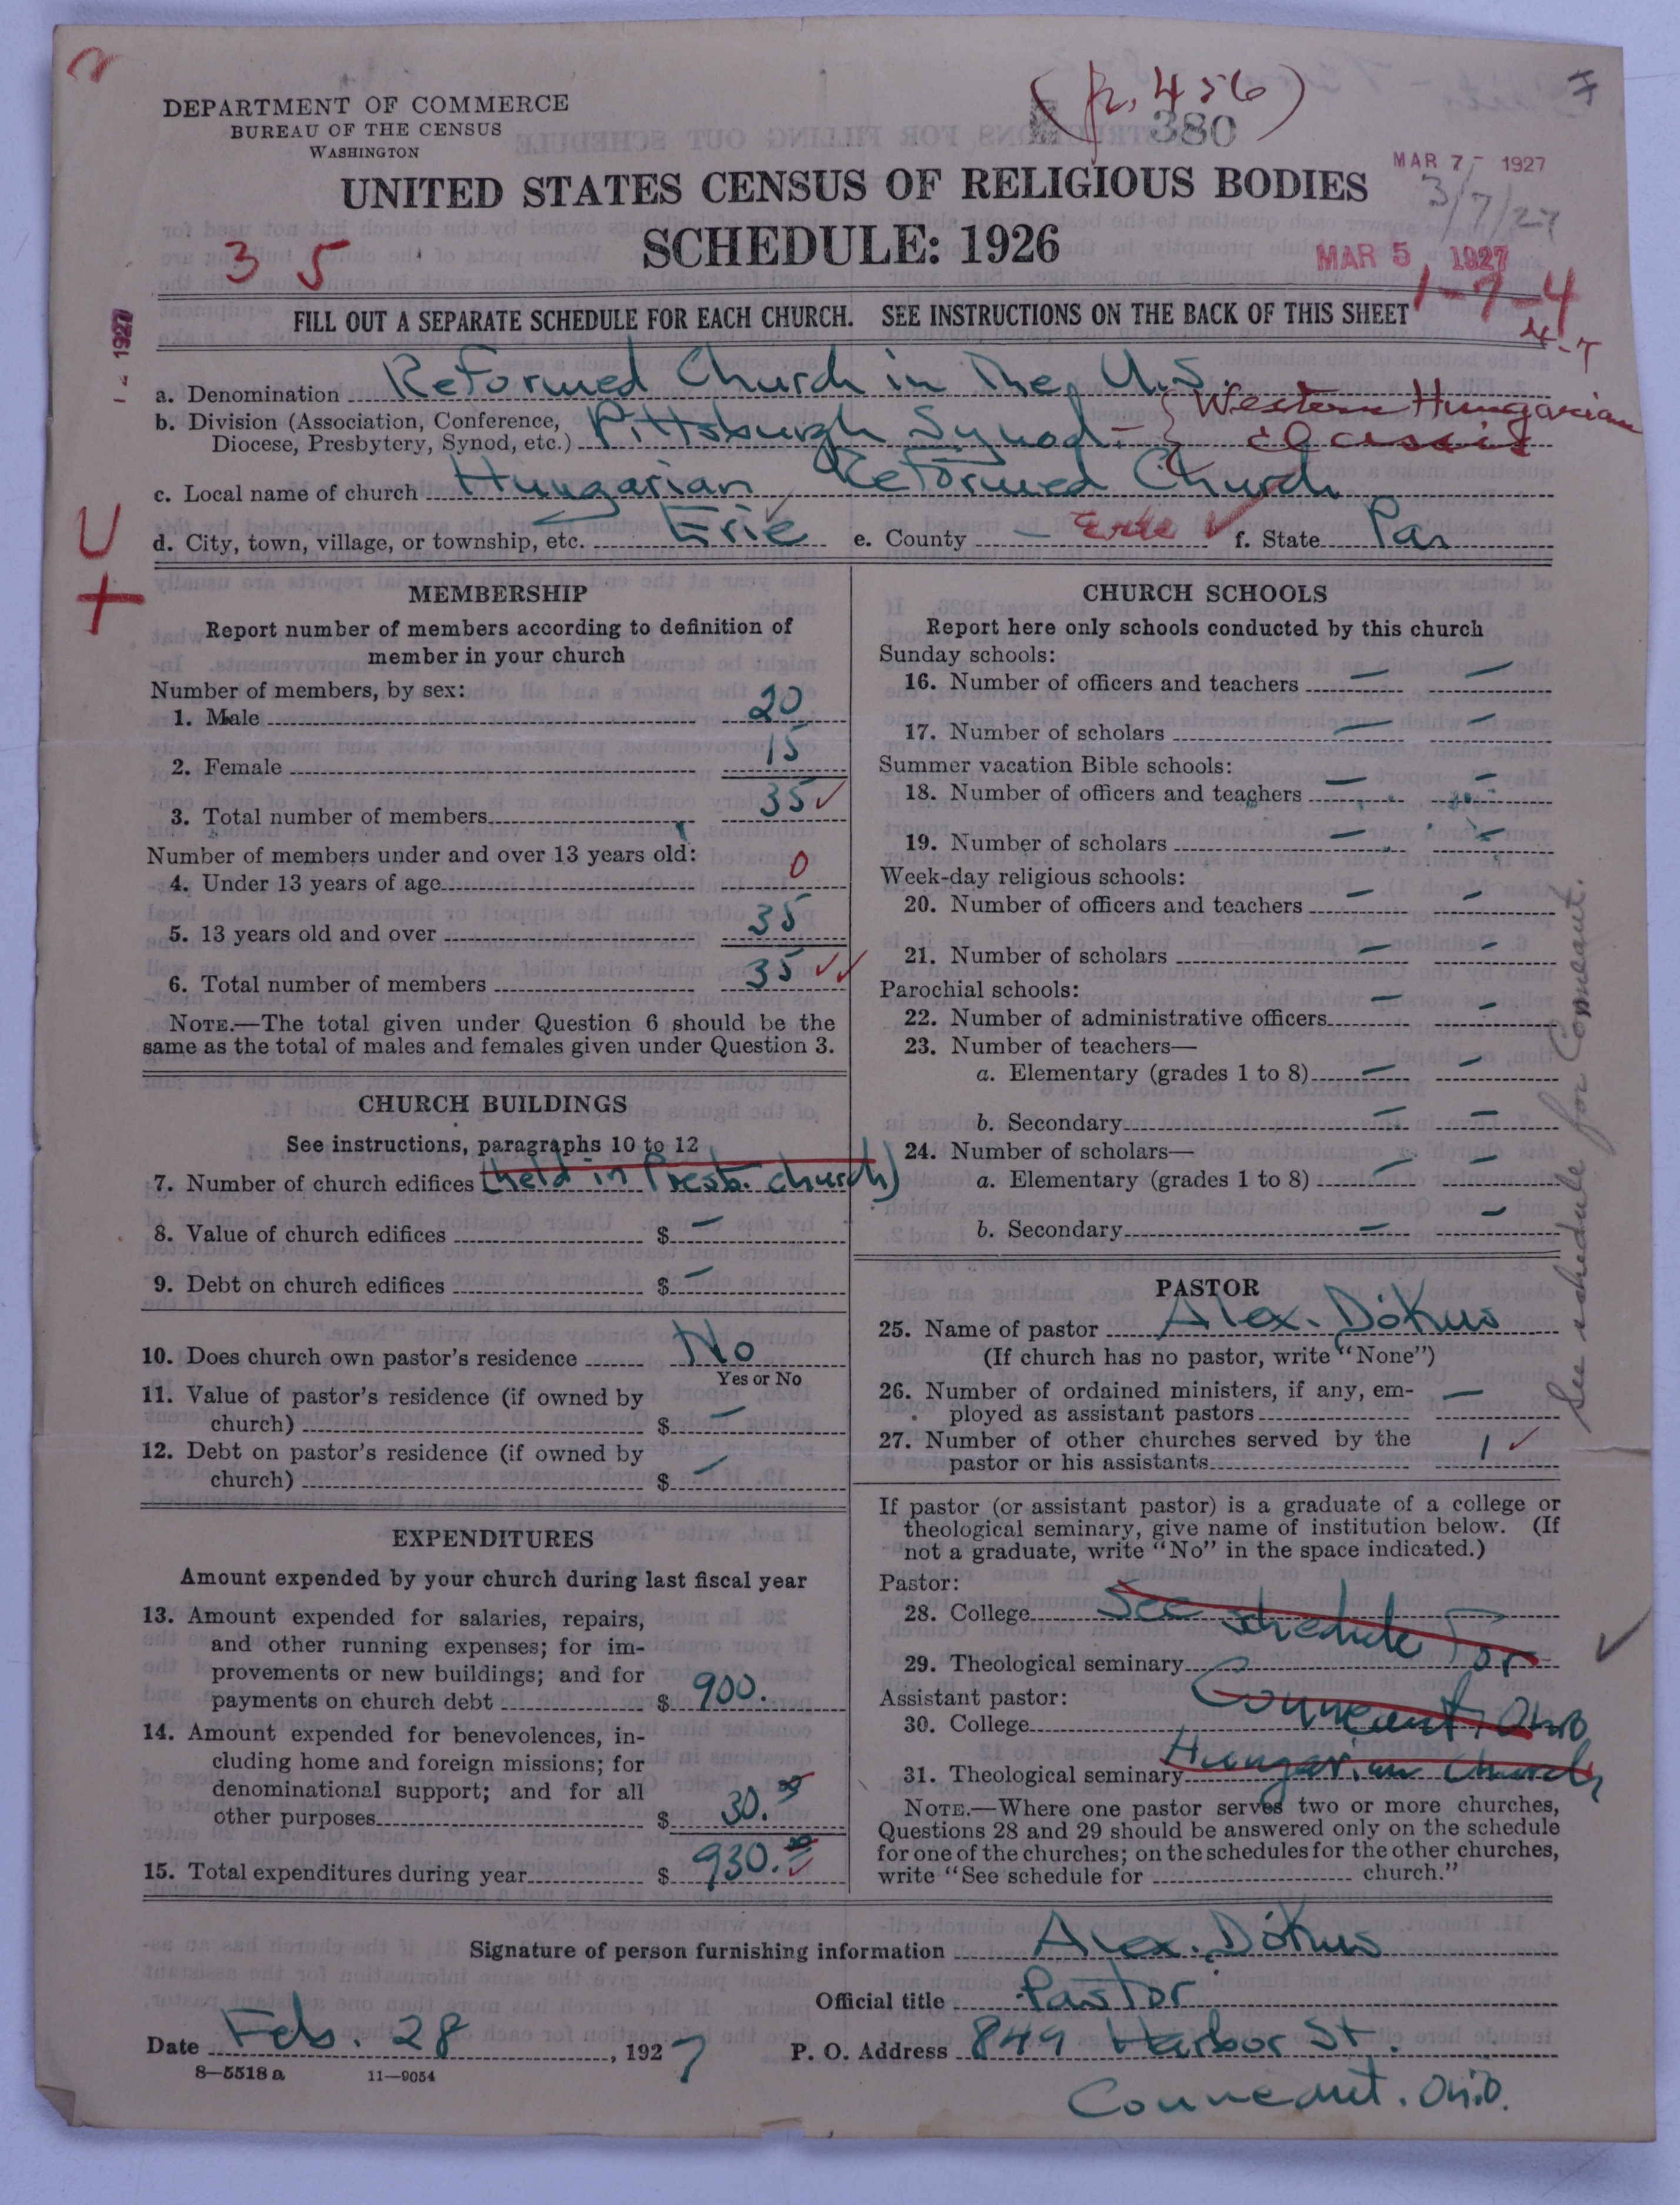 (p. 456)
380
DEPARTMENT OF COMMERCE
BUREAU OF THE CENSUS
WASHINGTON
MAR 7 - 1927
3/7/27
UNITED STATES CENSUS OF RELIGIOUS BODIES
SCHEDULE: 1926
35
MAR 5 1927
1-7-4
4-7
1927
FILL OUT A SEPARATE SCHEDULE FOR EACH CHURCH. SEE INSTRUCTIONS ON THE BACK OF THIS SHEET
a. Denomination Reformed Church in The U.S.
b. Division (Association, Conference, Diocese, Presbytery, Synod, etc.) Pittsburgh Synod - } Western Hungarian
classis
c. Local name of church Hungarian Reformed Church
d. City, town, village, or township, etc. Erie e. County - Erie ✓ f. State Pa.
U
+
MEMBERSHIP
Report number of members according to definition of
member in your church
Number of members, by sex:
1. Male 20
2. Female 15
3. Total number of members 35 ✓
Number of members under and over 13 years old:
4. Under 13 years of age 0
5. 13 years old and over 35
6. Total number of members 35 ✓✓
NOTE.—The total given under Question 6 should be the
same as the total of males and females given under Question 3.
CHURCH BUILDINGS
See instructions, paragraphs 10 to 12
7. Number of church edifices (held in Presb. church)
8. Value of church edifices $ —
9. Debt on church edifices $ —
10. Does church own pastor's residence No
Yes or No
11. Value of pastor's residence (if owned by
church) $ —
12. Debt on pastor's residence (if owned by
church) $ —
EXPENDITURES
Amount expended by your church during last fiscal year
13. Amount expended for salaries, repairs,
and other running expenses; for im-
provements or new buildings; and for
payments on church debt $ 900.
14. Amount expended for benevolences, in-
cluding home and foreign missions; for
denominational support; and for all
other purposes $ 30.
15. Total expenditures during year $ 930. ✓
CHURCH SCHOOLS
Report here only schools conducted by this church
Sunday schools:
16. Number of officers and teachers — —
17. Number of scholars — —
Summer vacation Bible schools:
18. Number of officers and teachers — —
19. Number of scholars — —
Week-day religious schools:
20. Number of officers and teachers — —
21. Number of scholars — —
Parochial schools:
22. Number of administrative officers — —
23. Number of teachers—
a. Elementary (grades 1 to 8) — —
b. Secondary — —
24. Number of scholars—
a. Elementary (grades 1 to 8) — —
b. Secondary — —
See schedule for Conneaut.
PASTOR
25. Name of pastor Alex. Dókus
(If church has no pastor, write "None")
26. Number of ordained ministers, if any, em-
ployed as assistant pastors —
27. Number of other churches served by the
pastor or his assistants 1 ✓
If pastor (or assistant pastor) is a graduate of a college or
theological seminary, give name of institution below. (If
not a graduate, write "No" in the space indicated.)
Pastor:
28. College See schedule for
29. Theological seminary Conneaut, Ohio
Assistant pastor:
30. College
31. Theological seminary Hungarian Church
NOTE.—Where one pastor serves two or more churches,
Questions 28 and 29 should be answered only on the schedule
for one of the churches; on the schedules for the other churches,
write "See schedule for church."
Signature of person furnishing information Alex. Dókus
Official title Pastor
Date Feb. 28, 1927 P. O. Address 849 Harbor St.
Conneaut. Ohio.
8—5518 a 11—9054